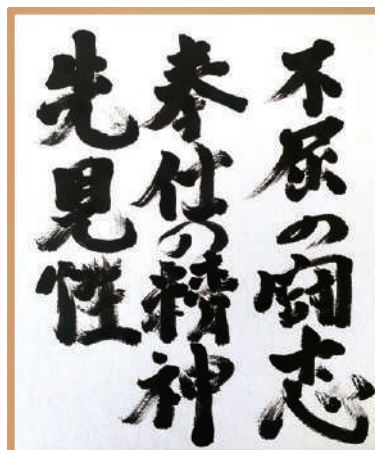 不屈の闘志
奉仕の精神
先見性